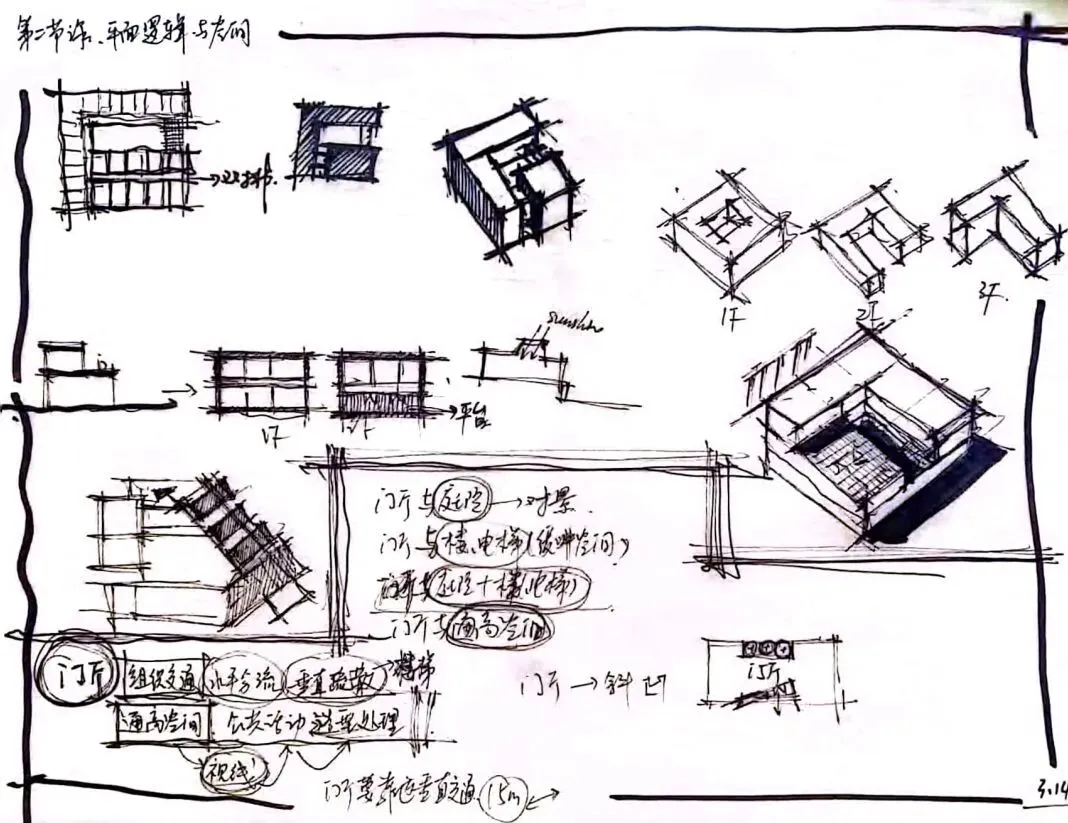 第二节课、平面逻辑与空间
1F
2F
3F.
sunshine
1F
平台
门厅与庭院→对景.
门厅与楼、电梯(缓冲空间)
门厅与庭院十楼(电梯)
门厅与通高空间
门厅 组织交通 水平分流 垂直疏散→楼梯
通高空间 公共活动 处理
视线!
门厅→斜凹
门厅
门厅要靠近垂直交通 15m
3.14